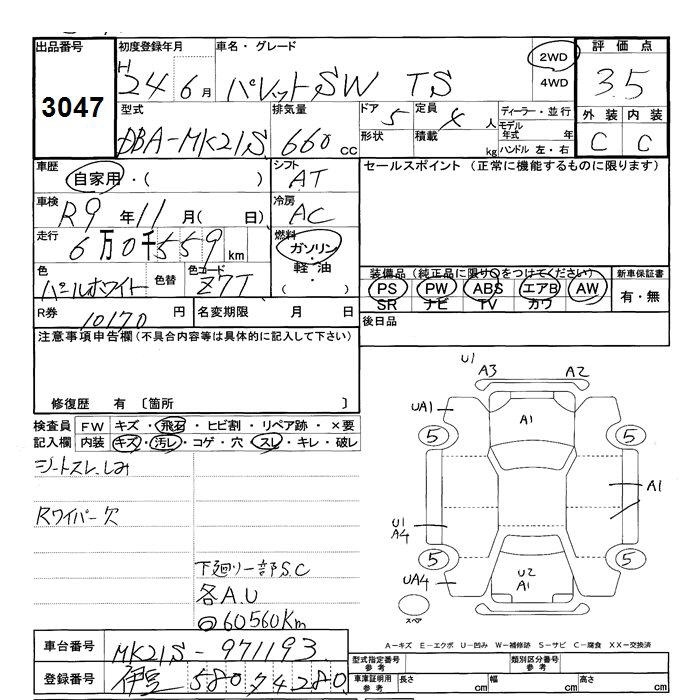 出品番号 3047
初度登録年月 H 24 6月
車名・グレード パレットSW TS
2WD 4WD
評価点 3.5
外装 C 内装 C
型式 DBA-MK21S
排気量 660 cc
ドア 5 定員 4人
形状 積載 kg
ディーラー・並行
モデル年式 年
ハンドル 左・右
車歴 自家用・( )
シフト AT
セールスポイント (正常に機能するものに限ります)
車検 R9年11月( 日)
冷房 AC
走行 6万0千559km
燃料 ガソリン・軽油・( )
色 パールホワイト 色替 色コード Z7T
装備品(純正品に限り○をつけてください)
PS PW ABS エアB AW
SR ナビ TV カワ
新車保証書 有・無
R券 10170円 名変期限 月 日
後日品
注意事項申告欄(不具合内容等は具体的に記入して下さい)
修復歴 有 〔箇所 〕
検査員記入欄
FW キズ・飛石・ヒビ割・リペア跡・×要
内装 キズ・汚レ・コゲ・穴・スレ・キレ・破レ
シートスレ、しみ
Rワイパー欠
下廻り一部S.C
各A.U
60560Km
U1
A3 A2
UA1 A1
5 5
A1
U1
A4
5 5
UA4 U2
A1
スペア
A-キズ E-エクボ U-凹み W-補修跡 S-サビ C-腐食 XX-交換済
車台番号 MK21S-971193
登録番号 伊豆 580 タ 4280
型式指定番号 参考 類別区分番号 参考
車庫証明用 参考 長さ cm 幅 cm 高さ cm